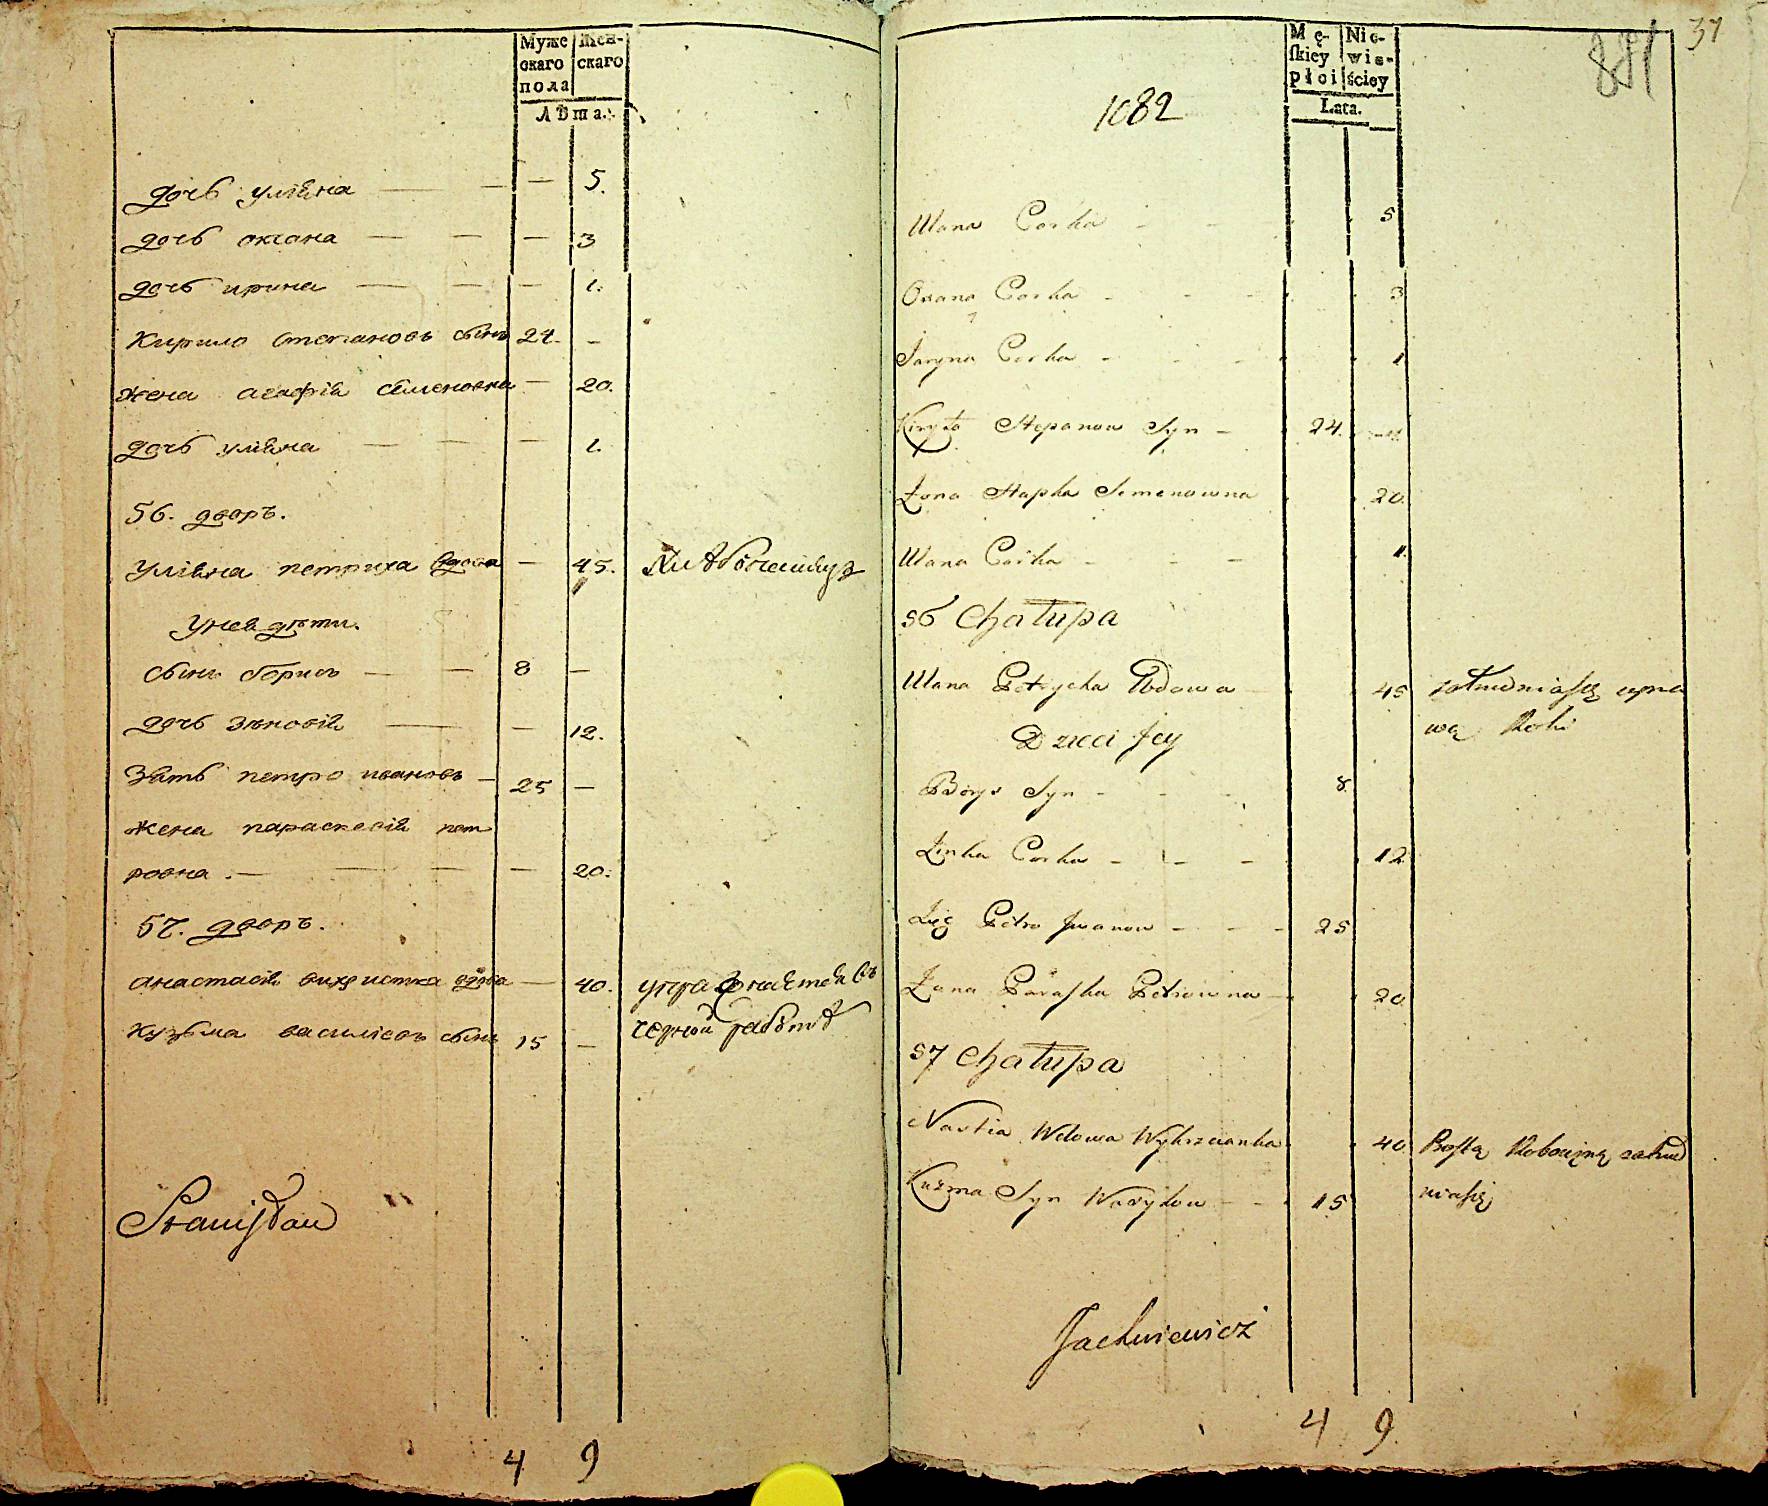 Муже
скаго
пола
Жен-
скаго
Лѣта.
дочь уліяна — — — 5.
дочь оксана — — — 3
дочь ирина — — — 1.
Кирило степановъ сынъ 24. —
жена агафія семеновна — 20.
дочь уліяна — — — 1.
56. дворъ.
Уліяна петриха вдова — 45.
У нея дѣти.
сынъ борисъ — — 8 —
дочь зѣновія — — 12.
Зять петро ивановъ — 25 —
жена параскевія пет
ровна. — — — — 20.
57. дворъ.
анастасія вихристка вдова — 40. упражняется въ
чорной работѣ
кузьма василіевъ сынъ 15 —
Stanisław
4 9
37
881
1082
Mę-
skiey
płci
Nie-
wie-
ściey
Lata.
Ulana Corka - - 5
Oxana Corka - - - 3
Jaryna Corka - - - 1
Kiryło Stepanow Syn - 24.
Żona Hapka Semenowna 20.
Ulana Corka - - - 1.
56 Chałupa
Ulana Petrycha Wdowa - 45 zatrudnia się upra
wą Roli
Dzieci Jey
Borys Syn - - - 8.
Zinka Corka - - - 12
Zięć Petro Jwanow - - - 25
Żona Paraska Petrowna - 20
57 Chałupa
Nastia Wdowa Wykrzcianka 40. Prostą Robocizną zatrud
nia się
Kuzma Syn Wasylow - - 15
Jachniewicz
4 9